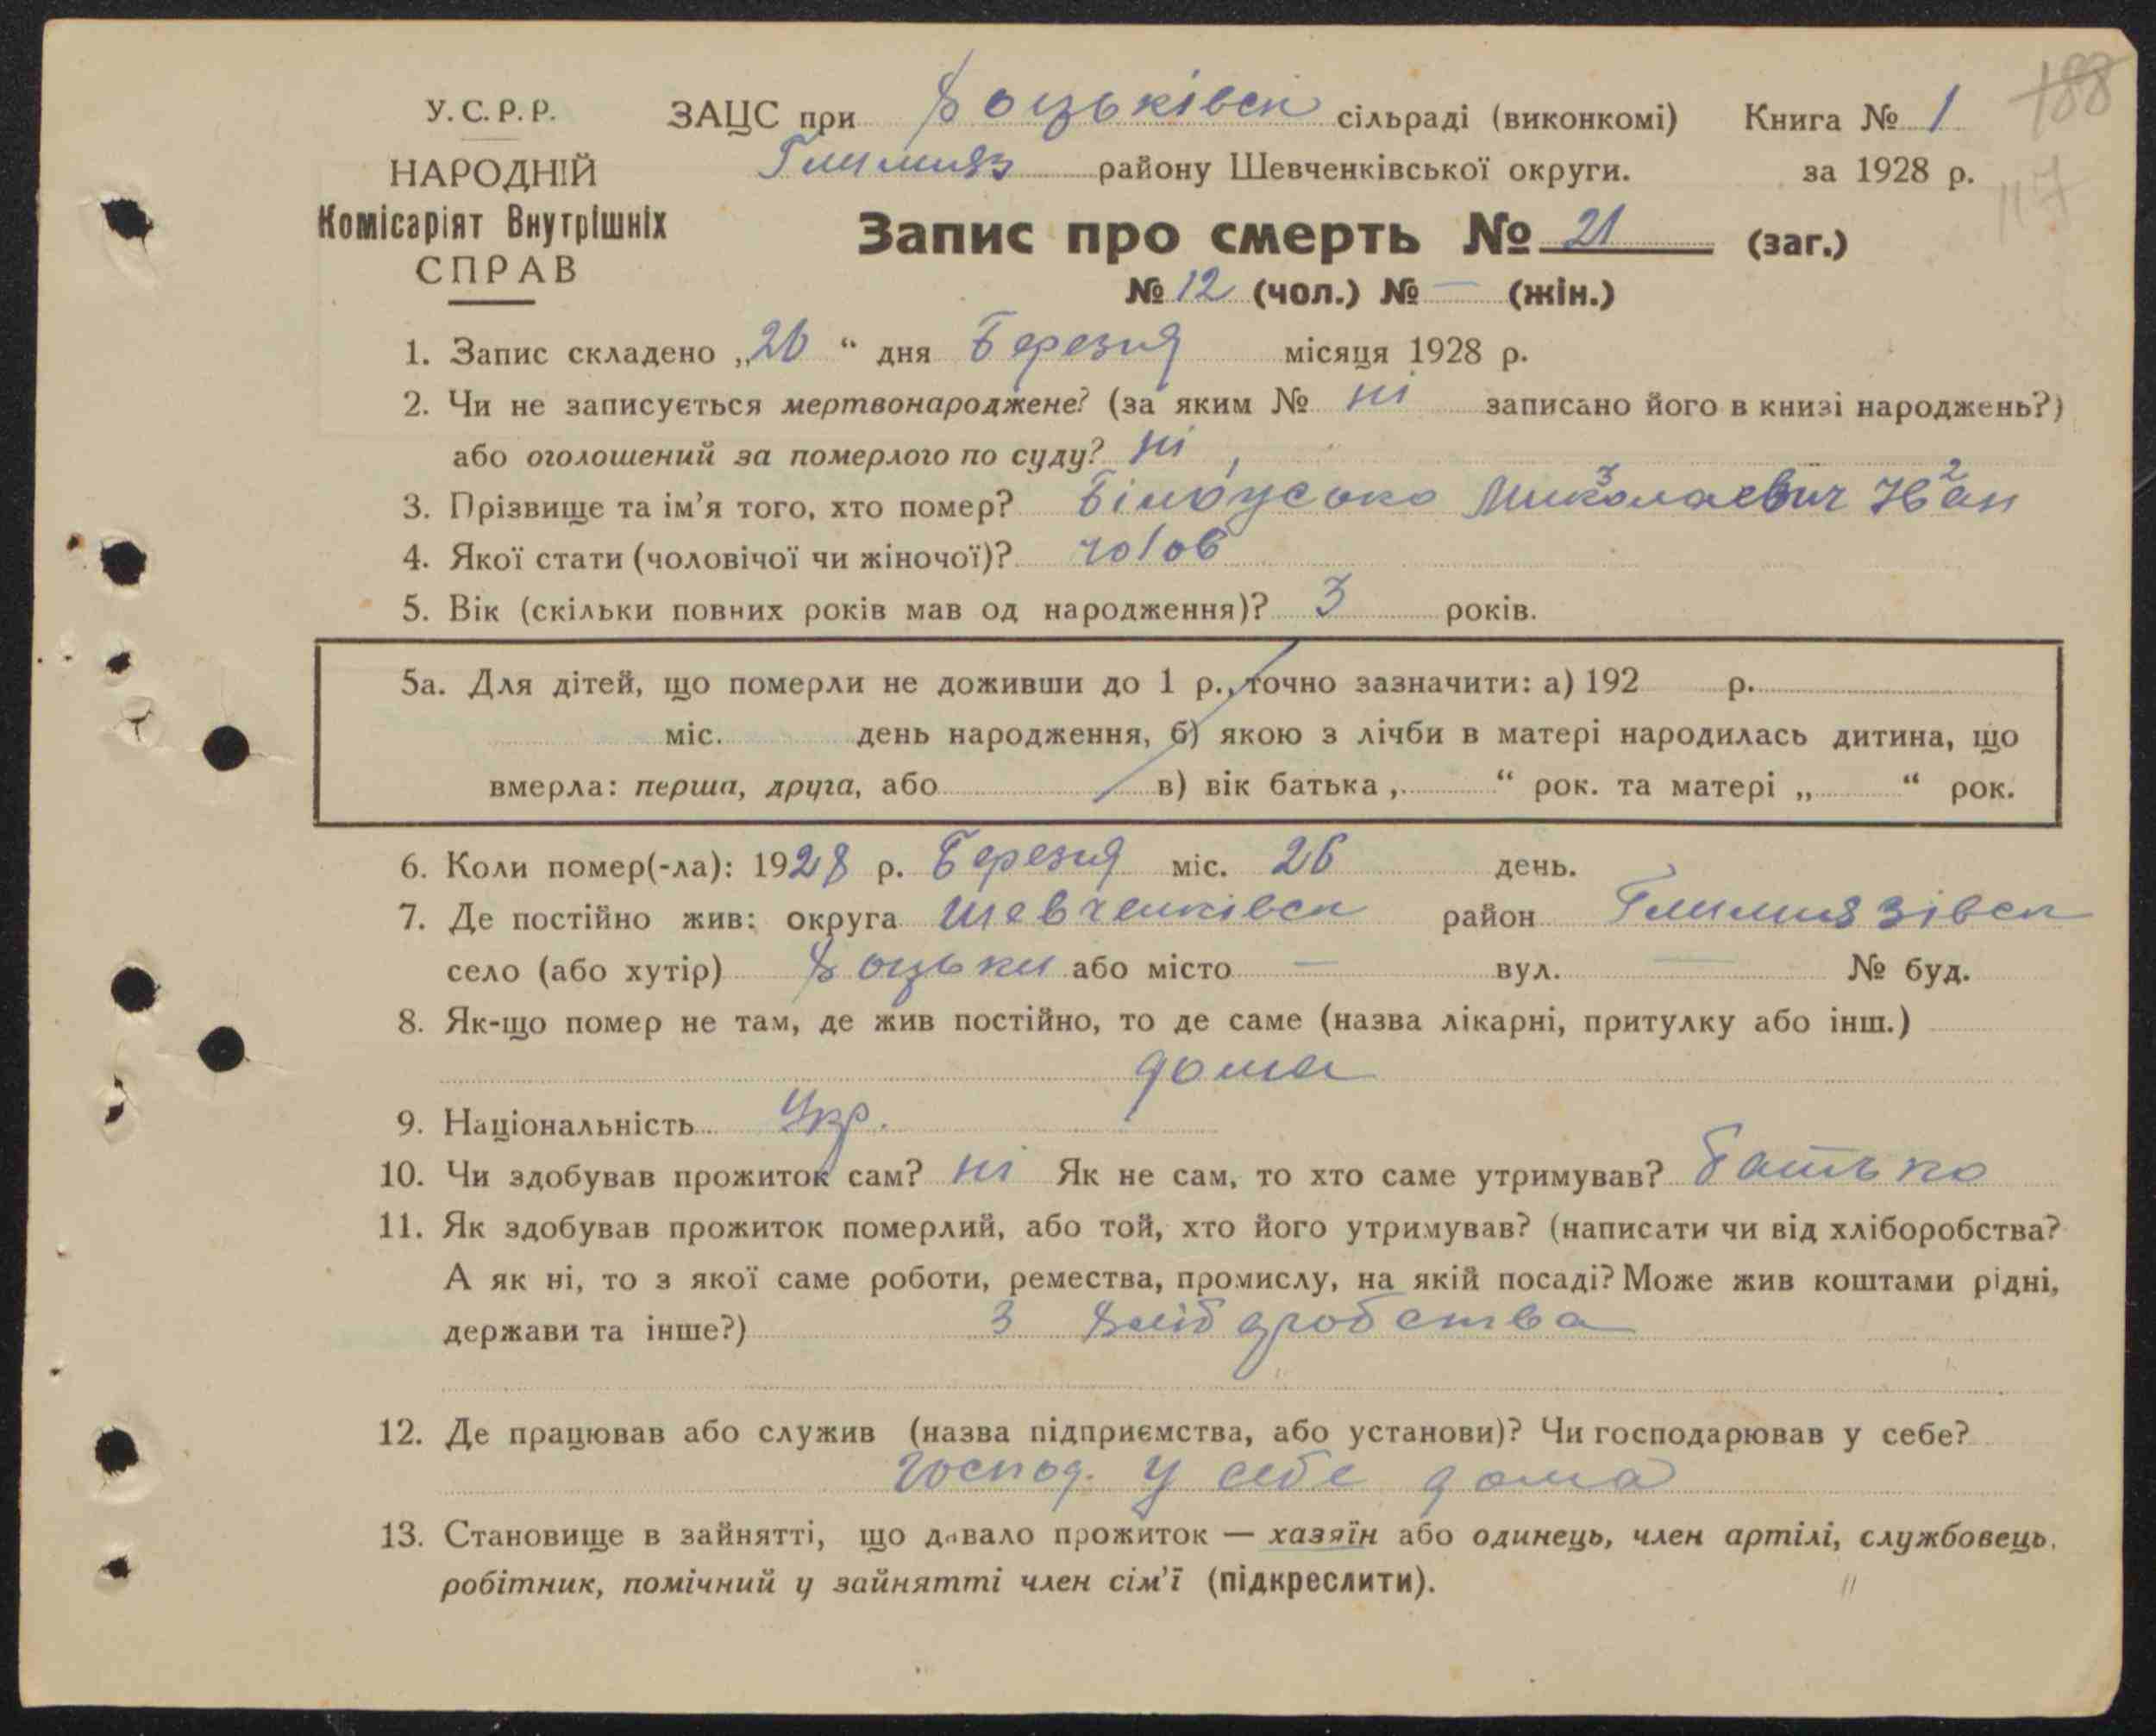 188
У.С.Р.Р. ЗАЦС при Хоцьківск сільраді (виконкомі) Книга № 1
НАРОДНІЙ Гельмяз району Шевченківської округи. за 1928 р.
117
Комісаріят Внутрішніх
СПРАВ
Запис про смерть № 21 (заг.)
№ 12 (чол.) № — (жін.)
1. Запис складено „26“ дня Березня місяця 1928 р.
2. Чи не записується мертвонароджене? (за яким № ні записано його в книзі народжень?)
або оголошений за померлого по суду? ні
3. Прізвище та ім’я того, хто помер? Білоусько Миколаєвич 3 Іван 2
4. Якої стати (чоловічої чи жіночої)? чолов
5. Вік (скільки повних років мав од народження)? 3 років.
5а. Для дітей, що померли не доживши до 1 р., точно зазначити: а) 192 р.
міс. день народження, б) якою з лічби в матері народилась дитина, що
вмерла: перша, друга, або в) вік батька „ “ рок. та матері „ “ рок.
6. Коли помер(-ла): 1928 р. Березня міс. 26 день.
7. Де постійно жив: округа Шевченківск район Гельмязівск
село (або хутір) Хоцьки або місто — вул. — № буд.
8. Як-що помер не там, де жив постійно, то де саме (назва лікарні, притулку або інш.)
дома
9. Національність Укр.
10. Чи здобував прожиток сам? ні Як не сам, то хто саме утримував? батько
11. Як здобував прожиток померлий, або той, хто його утримував? (написати чи від хліборобства?
А як ні, то з якої саме роботи, ремества, промислу, на якій посаді? Може жив коштами рідні,
держави та інше?) З хлібаробства
12. Де працював або служив (назва підприємства, або установи)? Чи господарював у себе?
господ. у себе дома
13. Становище в зайнятті, що давало прожиток — хазяїн або одинець, член артілі, службовець,
робітник, помічний у зайнятті член сім’ї (підкреслити).